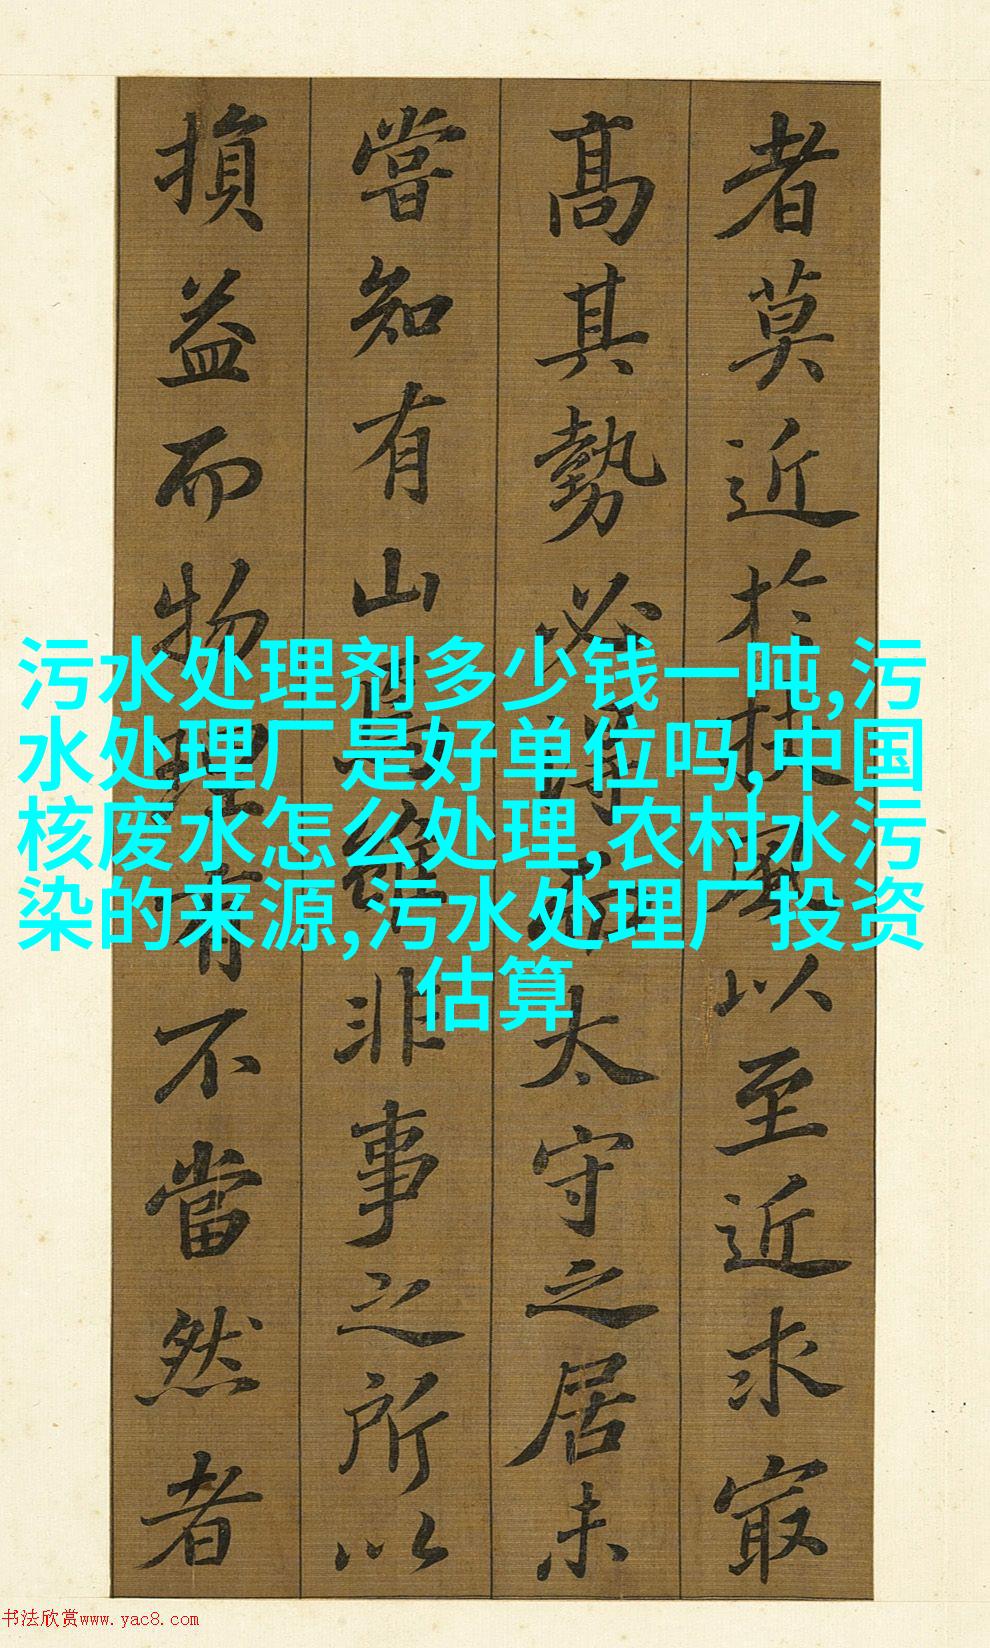 者莫近於扶風以至近求冣
高其勢必得而太守之居未
嘗知有山焉雖非事之所以
損益而物理有不當然者
污水处理剂多少钱一吨,污
水处理厂是好单位吗,中国
核废水怎么处理,农村水污
染的来源,污水处理厂投资
估算
书法欣赏www.yac8.com